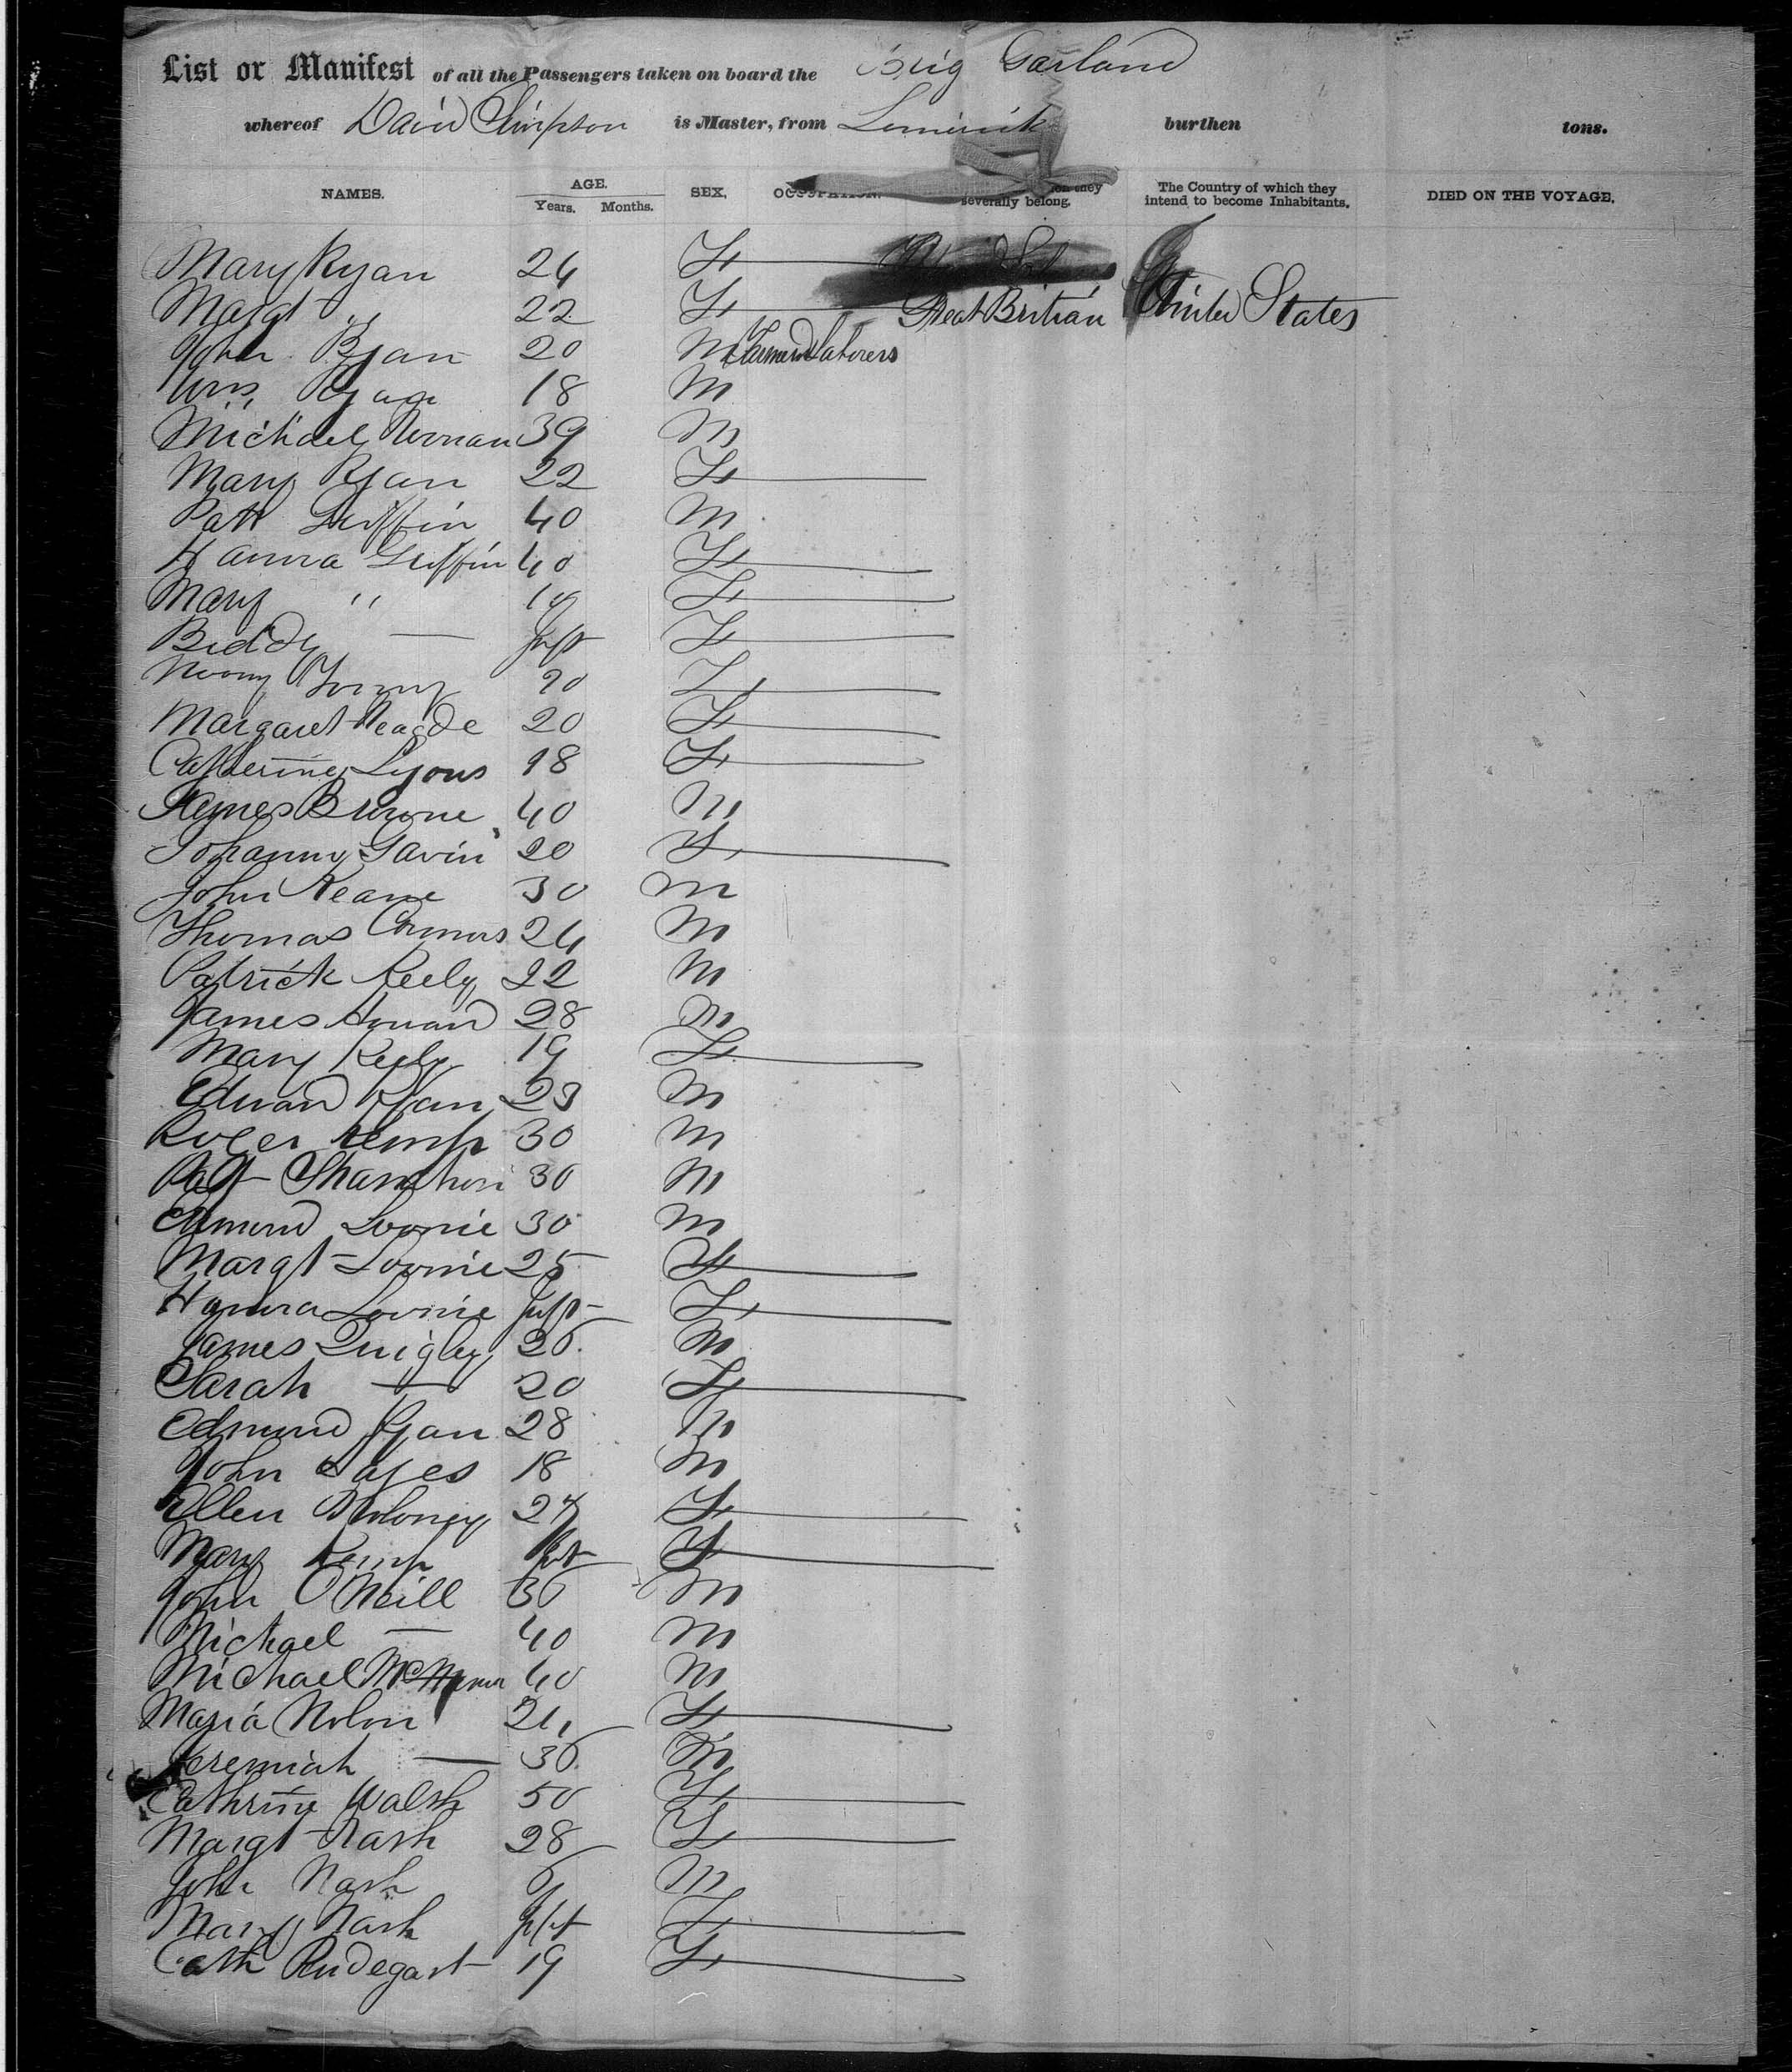 List or Manifest of all the Passengers taken on board the Brig Garland
whereof David Simpson is Master, from Limerick burthen tons.
NAMES. AGE. SEX. OCCUPATION. they The Country of which they DIED ON THE VOYAGE.
Years. Months. severally belong. intend to become Inhabitants.
Mary Ryan 24 F
Margt " 22 F Great Britian United States
John Ryan 20 M Farmers Laborers
Wm Ryan 18 M
Michael 39 M
Mary Ryan 22 F
Patt Griffin 40 M
Hanna Griffin 40 F
Mary " 10 F
Biddy — Inft F
20 F
Margaret 20 F
Catherine Lyons 18 F
James Browne 40 M
Johanna Gavin 20 F
John Keane 30 M
Thomas Connors 24 M
Patrick Keely 22 M
James Howard 28 M
Mary Keely 19 F
Edward Ryan 23 M
Roger Kemp 30 M
Patt Shanahon 30 M
Edmund Loonie 30 M
Margt Loonie 25 F
Hanora Loonie Inft F
James Quigley 20 M
Sarah — 20 F
Edmund Ryan 28 M
John Hayes 18 M
Ellen Moloney 24 F
Mary Kemp Inft F
John O'Neill 30 M
Michael — 40 M
Michael 40 M
Maria Nolon 24 F
Jeremiah — 30 M
Cathrine Walsh 50 F
Margt Nash 28 F
John Nash M
Mary Nash Inft F
Cath 19 F